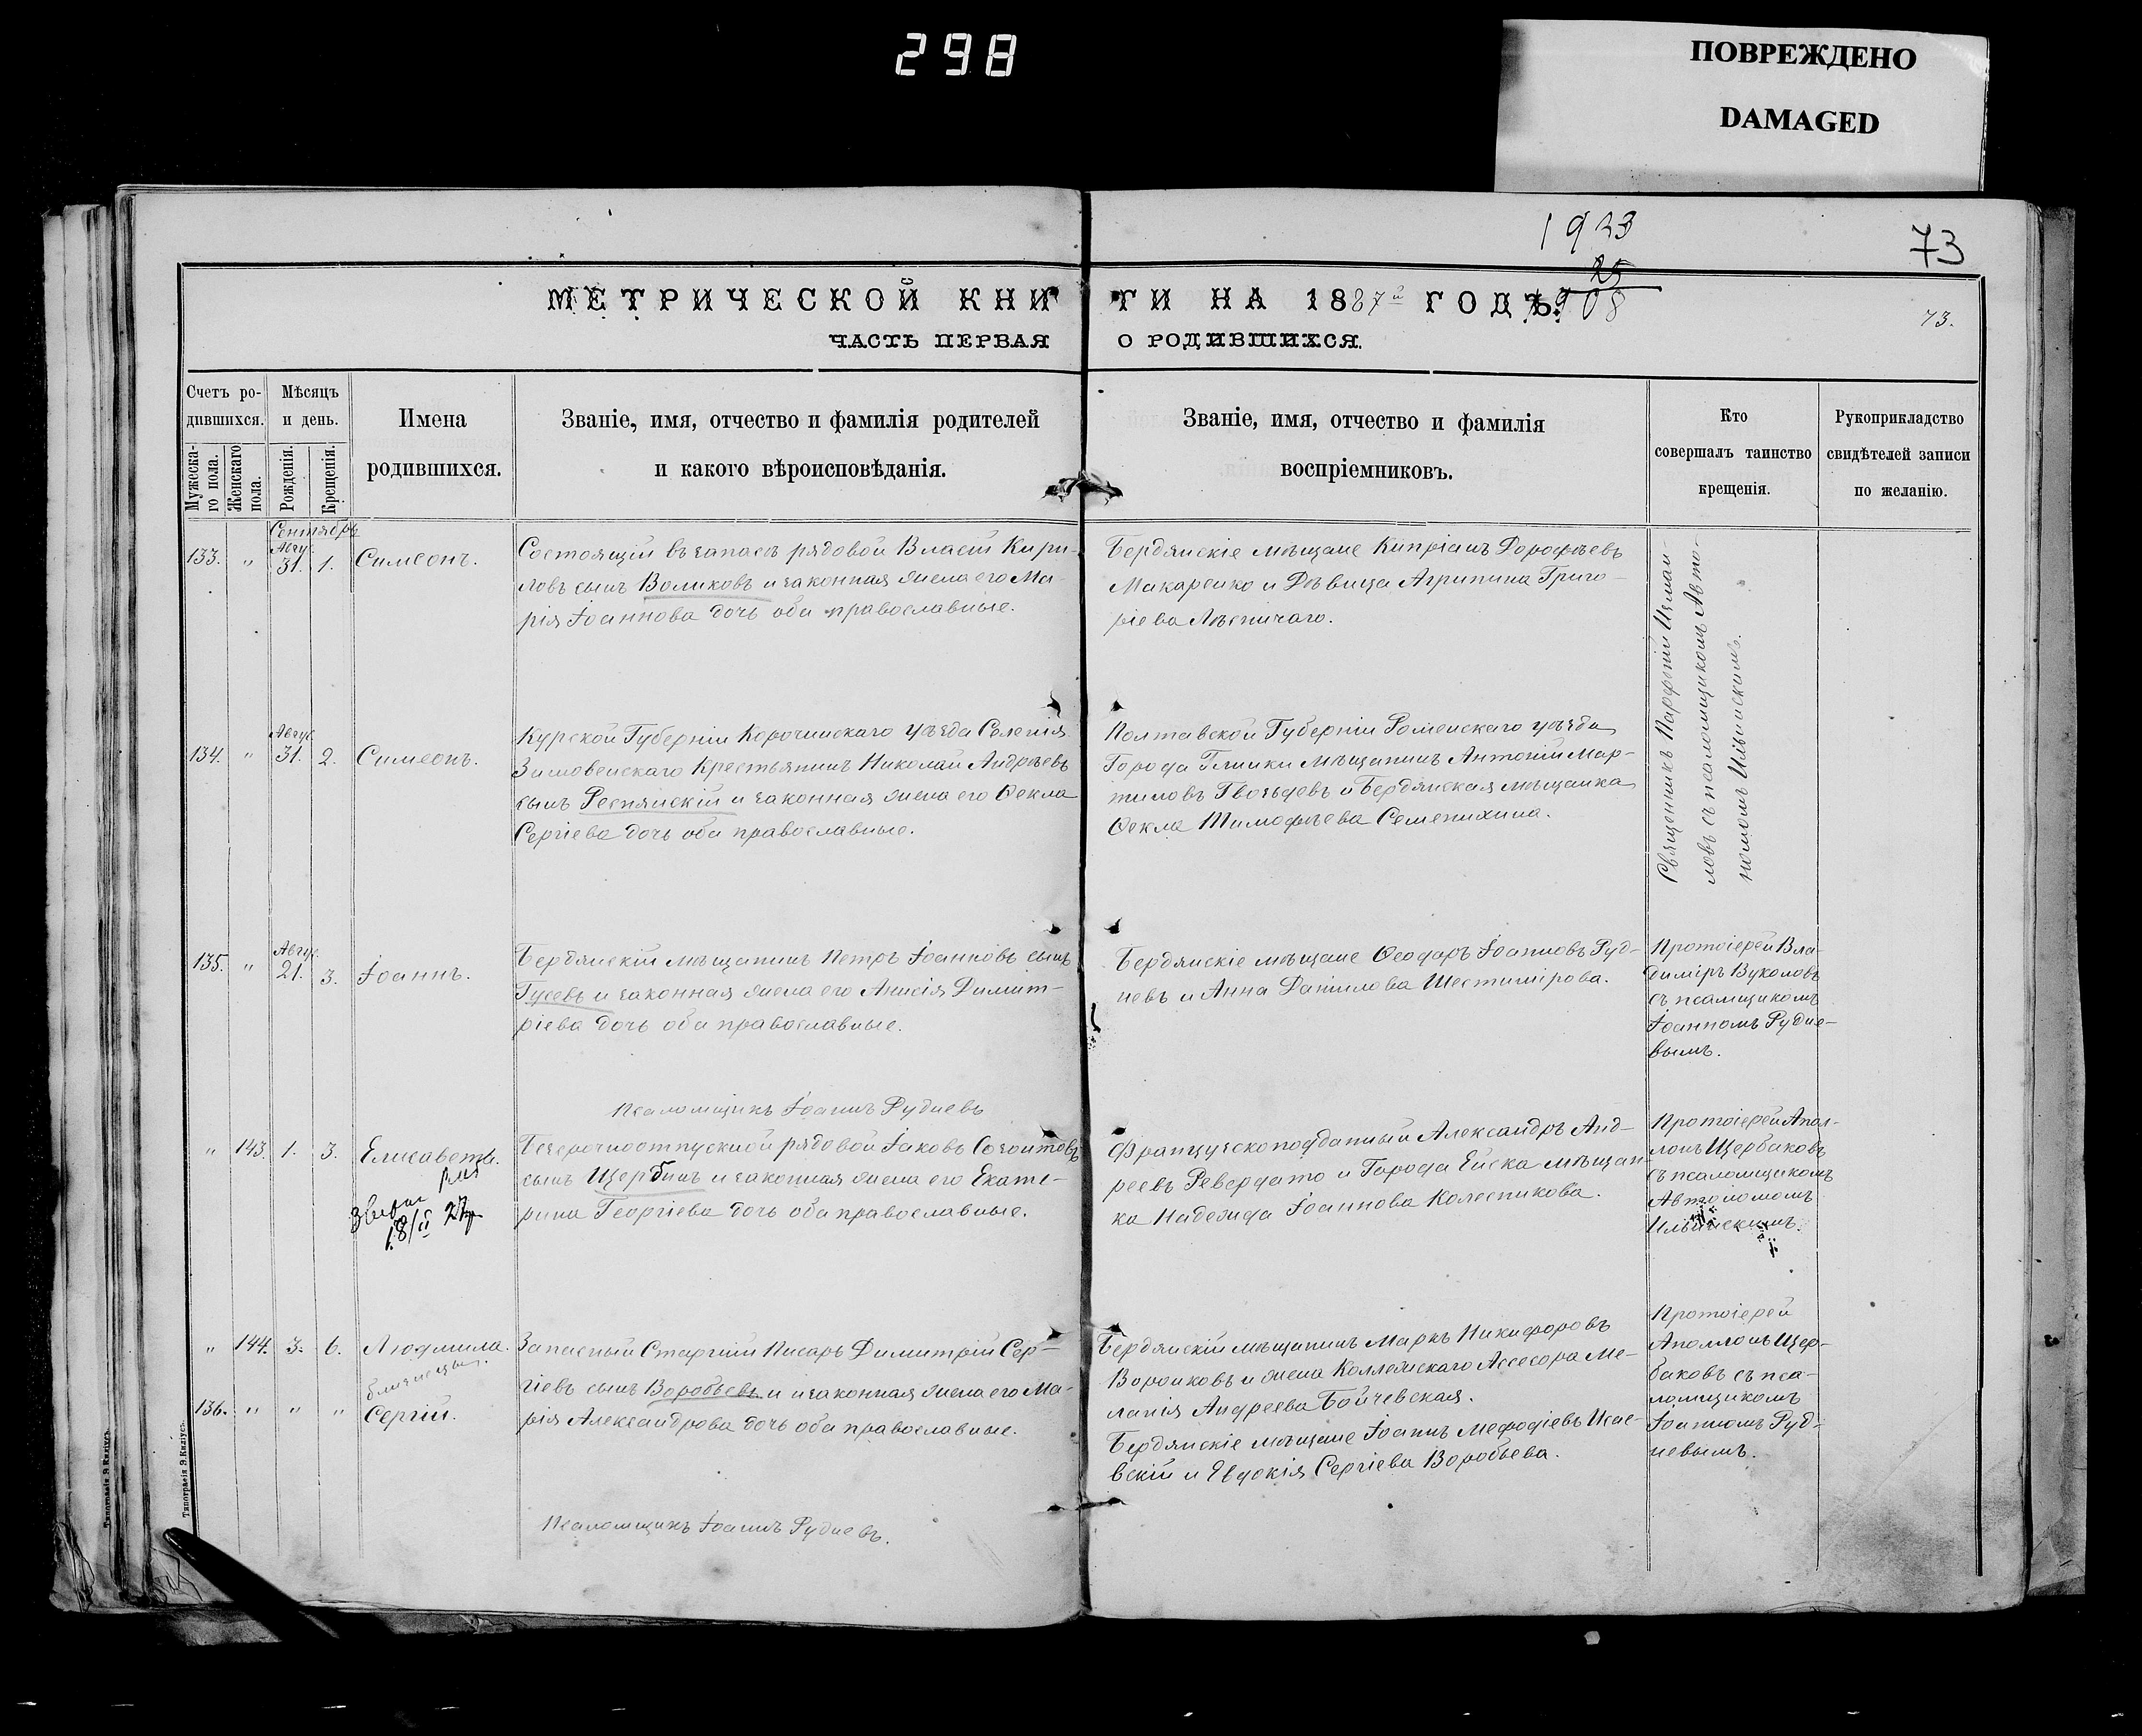 298
ПОВРЕЖДЕНО
DAMAGED
1923
25
1908
73
МЕТРИЧЕСКОЙ КНИ ГИ НА 1887й ГОДЪ.
73.
ЧАСТЬ ПЕРВАЯ О РОДИВШИХСЯ.
Счетъ ро-
дившихся.
Мѣсяцъ
и день.
Мужеска-
го пола.
Женскаго
пола.
Рожденія.
Крещенія.
Имена
родившихся.
Званіе, имя, отчество и фамилія родителей
и какого вѣроисповѣданія.
Званіе, имя, отчество и фамилія
воспріемниковъ.
Кто
совершалъ таинство
крещенія.
Рукоприкладство
свидѣтелей записи
по желанію.
Сентябрь
133. " Авгу. 31. 1. Симеонъ.
Состоящій въ запасѣ рядовой Власій Кири-
ловъ сынъ Воликовъ и законная жена его Ма-
рія Іоаннова дочь оба православные.
Бердянскіе мѣщане Кипріанъ Дорофѣевъ
Макаренко и Дѣвица Агрипина Григо-
ріева Лѣсничаго.
Священникъ Парфеній Измаи-
ловъ съ псаломщикомъ Авто-
номомъ Ильинскимъ.
134. " Авгус. 31. 2. Симеонъ.
Курской Губерніи Корочинскаго уѣзда Селенія
Зимовенскаго Крестьянинъ Николай Андрѣевъ
сынъ Реснянскій и законная жена его Ѳекла
Сергіева дочь оба православные.
Полтавской Губерніи Роменскаго уѣзда
Города Глинки мѣщанинъ Антоній Мар-
тиловъ Гвоздевъ и Бердянская мѣщанка
Ѳекла Тимофѣева Семенихина.
135. " Авгус. 21. 3. Іоаннъ.
Бердянскій мѣщанинъ Петръ Іоанновъ сынъ
Гусевъ и законная жена его Анисія Димит-
ріева дочь оба православные.
Бердянскіе мѣщане Ѳеодоръ Іоанновъ Руд-
невъ и Анна Данілова Шестимірова.
Протоіерей Вла-
диміръ Вуколовъ
съ псамщикомъ
Іоанномъ Рудне-
вымъ.
Псаломщикъ Іоаннъ Рудневъ
" 143. 1. 3. Елисаветъ.
18/II 27
Безсрочноотпускной рядовой Іаковъ Созонтовъ
сынъ Щербинъ и законная жена его Екате-
рина Георгіева дочь оба православные.
Французскоподданный Александръ Анд-
реевъ Ревердато и Города Ейска мѣщан-
ка Надежда Іоаннова Колесникова.
Протоіерей Апол-
лонъ Щербаковъ
съ псаломщикомъ
Автономомъ
Ильинскимъ.
" 144. 3. 6. Людмила.
близнецы.
136. " " " Сергій.
Запасный Старшій Писарь Димитрій Сер-
гіевъ сынъ Воробьевъ и законная жена его Ма-
рія Александрова дочь оба православные.
Бердянскій мѣщанинъ Маркъ Никифоровъ
Воронковъ и жена Коллежскаго Ассесора Ме-
ланія Андреева Бойчевская.
Бердянскіе мѣщане Іоаннъ Мефодіевъ Исае-
вскій и Евдокія Сергіева Воробьева.
Протоіерей
Аполлонъ Щер-
баковъ съ пса-
ломщикомъ
Іоанномъ Руд-
невымъ.
Псаломщикъ Іоаннъ Рудневъ.
Типографія Э.Киліусъ.
Типографія Э.Киліусъ.